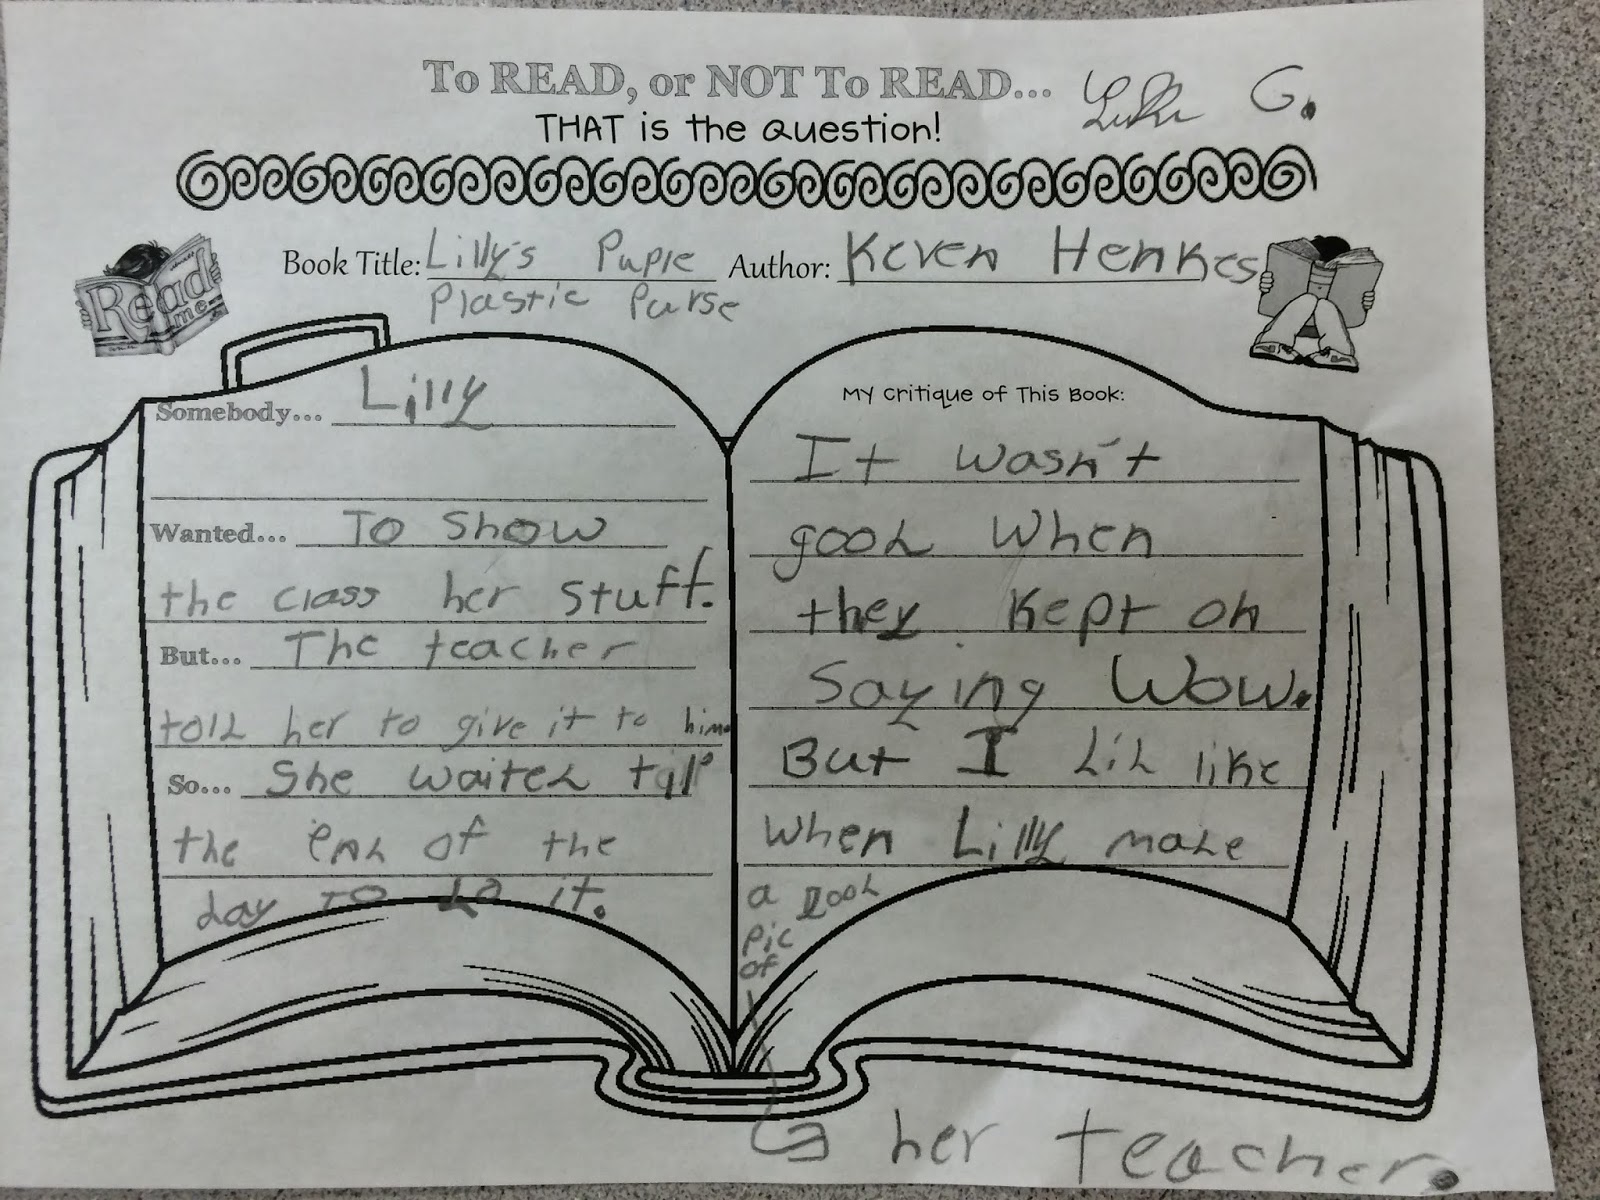 To READ, or NOT To READ...
Luke G.
THAT is the Question!
Read me
Book Title: Lilly's Puple Author: Keven Henkes
Plastic Purse
Somebody... Lilly
Wanted... To Show
the class her stuff.
But... The teacher
told her to give it to him
So... She waited till
the end of the
day to do it.
My Critique of This Book:
It wasn't
good when
they kept on
Saying Wow.
But I did like
when Lilly made
a good
pic
of
her teacher.